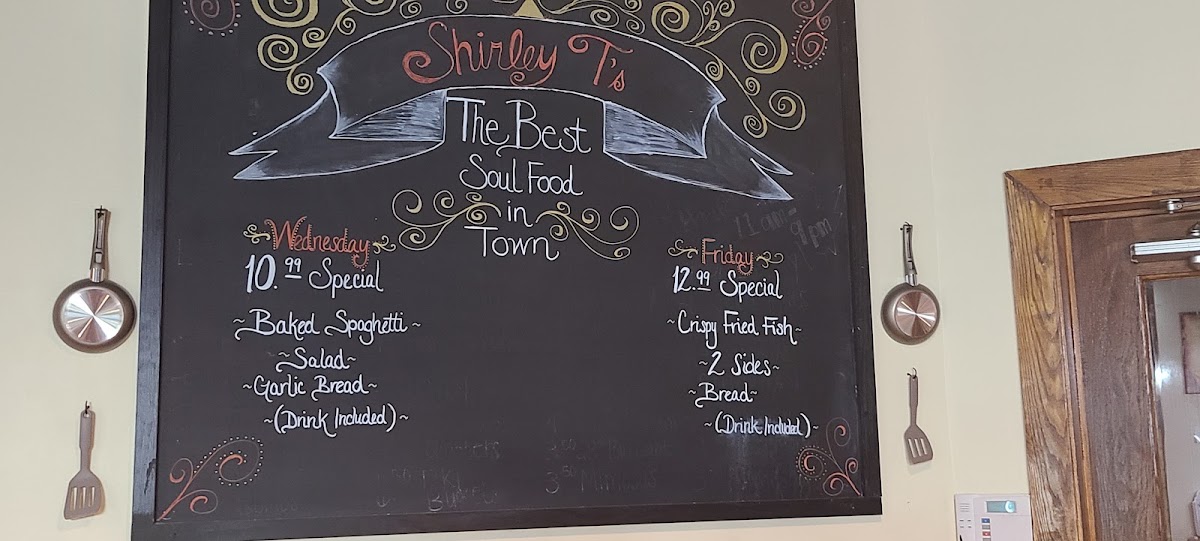 Shirley T's
The Best
Soul Food
in
Town
Wednesday
10.99 Special
~Baked Spaghetti~
~Salad~
~Garlic Bread~
~(Drink Included)~
Friday
12.99 Special
~Crispy Fried Fish~
~2 Sides~
~Bread~
~(Drink Included)~
11am
9pm